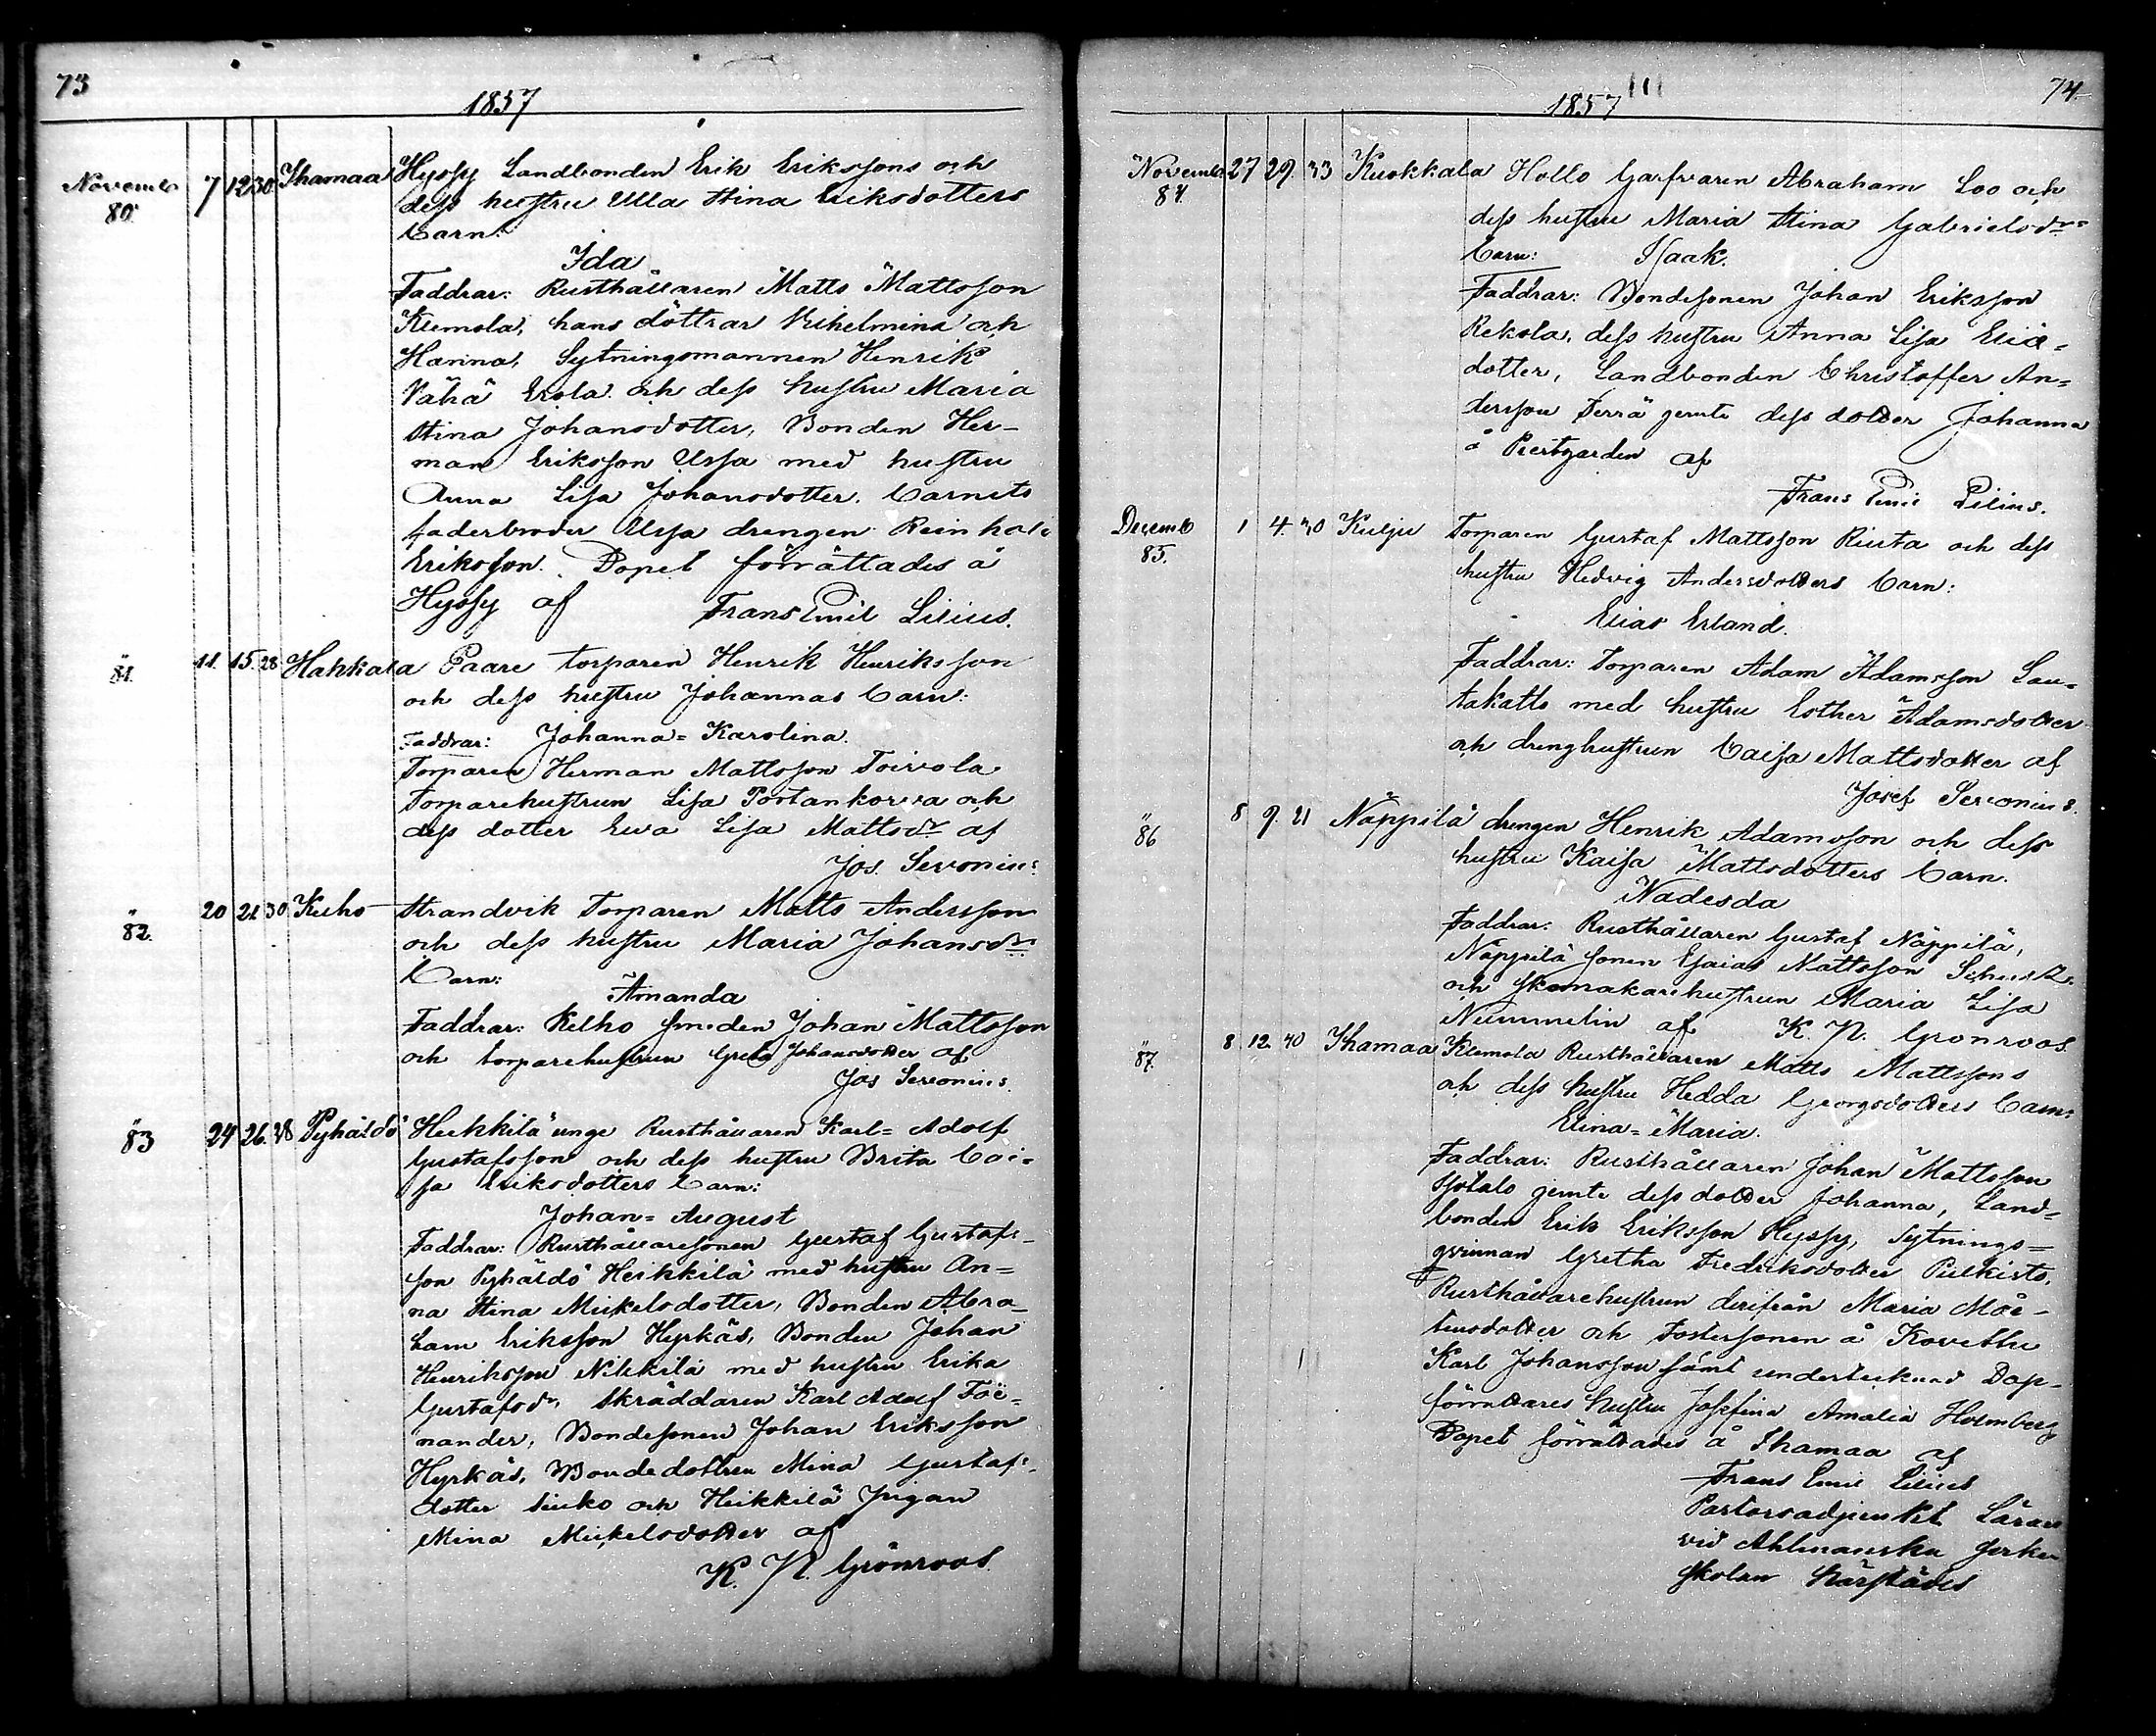 73
1857
Novemb 80. 7 12 30 Ihamaa Hyssy Landbonden Erik Erikssons och
dess hustru Ulla Stina Eriksdotters
barn:
Ida
Faddrar: Rusthållaren Matts Mattsson
Klemola, hans döttrar Vilhelmina och
Hanna, Sytningsmannen Henrik
Vähä Erola och dess hustru Maria
Stina Johansdotter, Bonden Her-
man Eriksson Ussa med hustru
Anna Lisa Johansdotter. Barnets
faderbroder Ussa drengen Reinhold
Eriksson. Dopet förrättades å
Hyssy af Frans Emil Lilius.
" 81. 11. 15. 28 Hahkala Paare torparen Henrik Henriksson
och dess hustru Johannas barn:
Faddrar: Johanna=Karolina.
Torparen Herman Mattsson Toivola
Torparehustrun Lisa Portankorva och
dess dotter Ewa Lisa Mattsdr af
Jos. Serconius
" 82. 20 21 30 Kulho Strandvik Torparen Matts Andersson
och dess hustru Maria Johansdr
Barn:
Amanda
Faddrar: Kelho smeden Johan Mattsson
och torparehustrun Greta Johansdotter af
Jos Serconius.
" 83 24 26. 38 Pyhäldö Heikkilä unge Rusthållaren Karl=Adolf
Gustafsson och dess hustru Brita Cai-
sa Eriksdotters barn:
Johan=August
Faddrar: Rusthållaresonen Gustaf Gustafs-
son Pyhäldö Heikkilä med hustru An=
na Stina Mickelsdotter, Bonden Abra-
ham Eriksson Hyrkäs, Bonden Johan
Henriksson Nikkilä med hustru Erika
Gustafsdr, Skräddaren Karl Adolf
nander, Bondesonen Johan Eriksson
Hyrkäs, Bondedottren Mina Gustafs-
dotter och Heikkilä pigan
Mina Mickelsdotter af
K. N. Grönroos.
74.
1857
Novemb 84. 27 29. 33 Kuokkala Hollo Garfvaren Abraham Loo och
dess hustru Maria Stina Gabrielsdrs
barn: Isaak.
Faddrar: Bondesonen Johan Eriksson
Rekola, dess hustru Anna Lisa Eliæ-
dotter, Landbonden Christoffer An=
dersson Perrä jemte dess dotter Johanna
å Prestgården af
Frans Emil Lilius.
Decemb 85. 1 4. 30 Kulju Torparen Gustaf Mattsson Riuta och dess
hustru Hedvig Andersdotters barn:
Elias Erland.
Faddrar: Torparen Adam Adamsson Lau-
takatto med hustru Esther Adamsdotter
och drenghustrun Caisa Mattsdotter af
Josef Serconius.
" 86 8 9. 21 Näppilä drengen Henrik Adamsson och dess
hustru Kaisa Mattsdotters barn.
Nadesda
Faddrar: Rusthållaren Gustaf Näppilä,
Näppilä sonen Esaias Mattsson
och skomakarehustrun Maria Lisa
Nummelin af K. N. Grönroos.
" 87. 8. 12. 40 Ihamaa Klemola Rusthållaren Matts Mattssons
och dess hustru Hedda Georgsdotters barn:
Elina=Maria.
Faddrar: Rusthållaren Johan Mattsson
Isotalo jemte dess dotter Johanna, Land-
bonden Erik Eriksson Hyssy, Sytnings=
qvinnan Gretha Fredriksdotter Pulkisto,
Rusthållarehustrun derifrån Maria Mår-
tensdotter och Fostersonen å Kovettu
Karl Johansson samt undertecknad Dop-
förrättares hustru Josefina Amalia Holmberg
Dopet förrättades å Ihamaa af
Frans Emil Lilius
Pastorsadjunkt Lärare
vid Ahlmanska
skolan härstädes